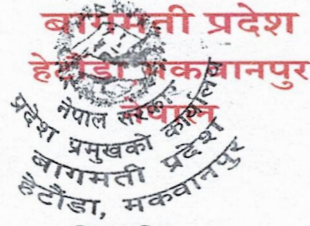 बागमती प्रदेश
हेटौंडा, मकवानपुर
नेपाल
नेपाल सरकार
प्रदेश प्रमुखको कार्यालय
बागमती प्रदेश
हेटौंडा, मकवानपुर